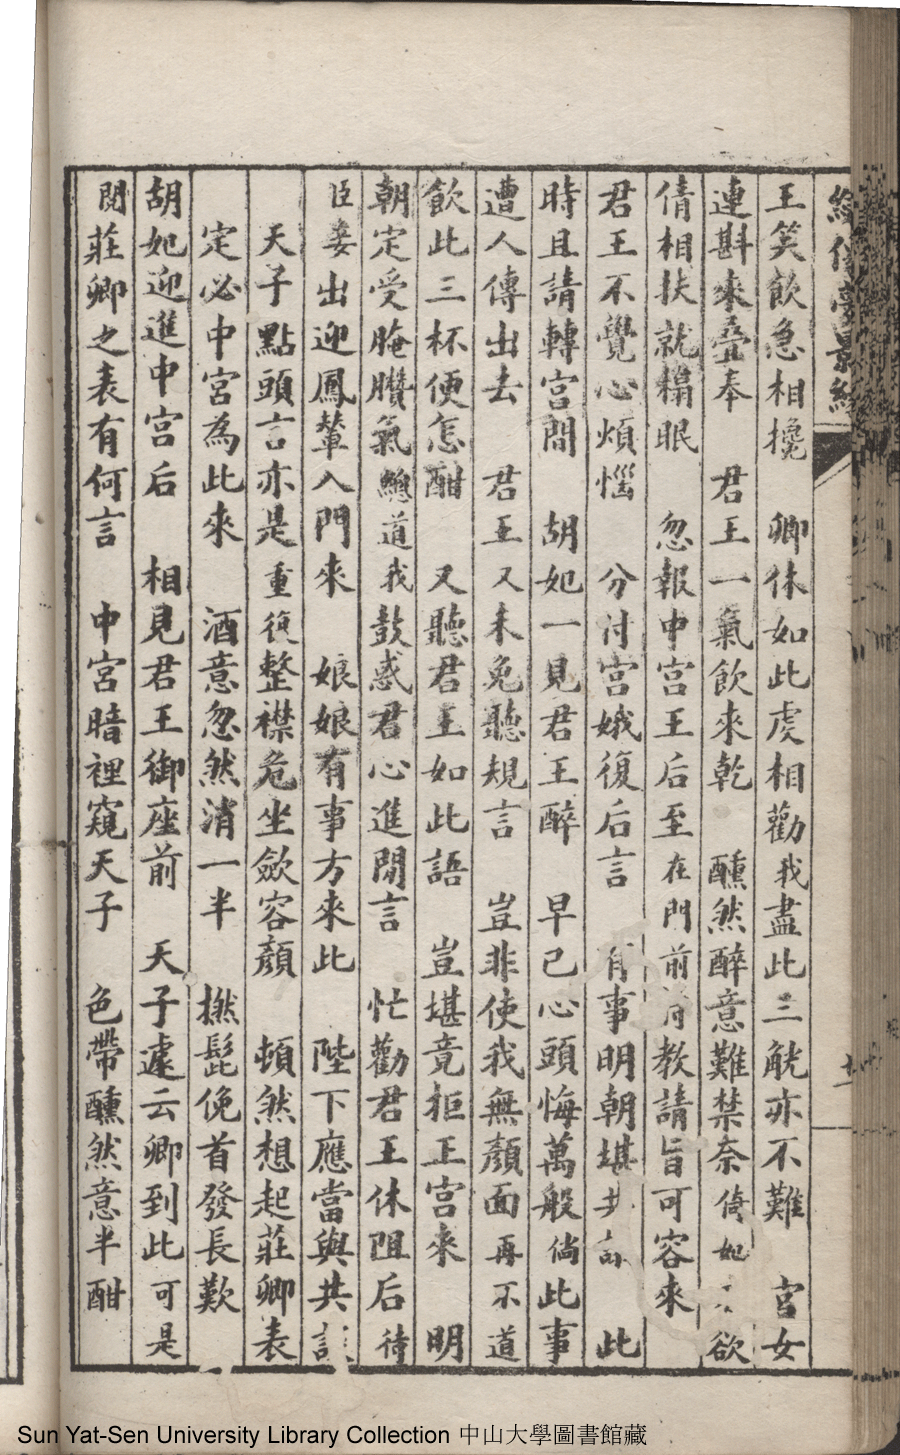 王笑飲急相攙　卿休如此虔相勸我盡此三觥亦不難　宮女
連斟來叠奉　君王一氣飲來乾　醺然醉意難禁奈倚妃　欲
倩相扶就榻眠　忽報中宮王后至在門前　教請旨可容來
君王不覺心煩惱　分付宮娥復后言　有事明朝堪　此
時且請轉宮間　胡妃一見君王醉　早已心頭悔萬般倘此事
遭人傳出去　君王又未免聽規言　豈非使我無顏面再不道
飲此三杯便怎酣　又聽君王如此語　豈堪竟拒正宮來　明
朝定受腌臢氣總道我鼓惑君心進閒言　忙勸君王休阻后待
臣妾出迎鳳輦入門來　娘娘有事方來此　陛下應當與共談
天子點頭言亦是重復整襟危坐歛容顏　頓然想起莊卿表
定必中宮為此來　酒意忽然消一半　撚髭俛首發長歎
胡妃迎進中宮后　相見君王御座前　天子遽云卿到此可是
閱莊卿之表有何言　中宮暗裡窺天子　色帶醺然意半酣
Sun Yat-Sen University Library Collection 中山大學圖書館藏